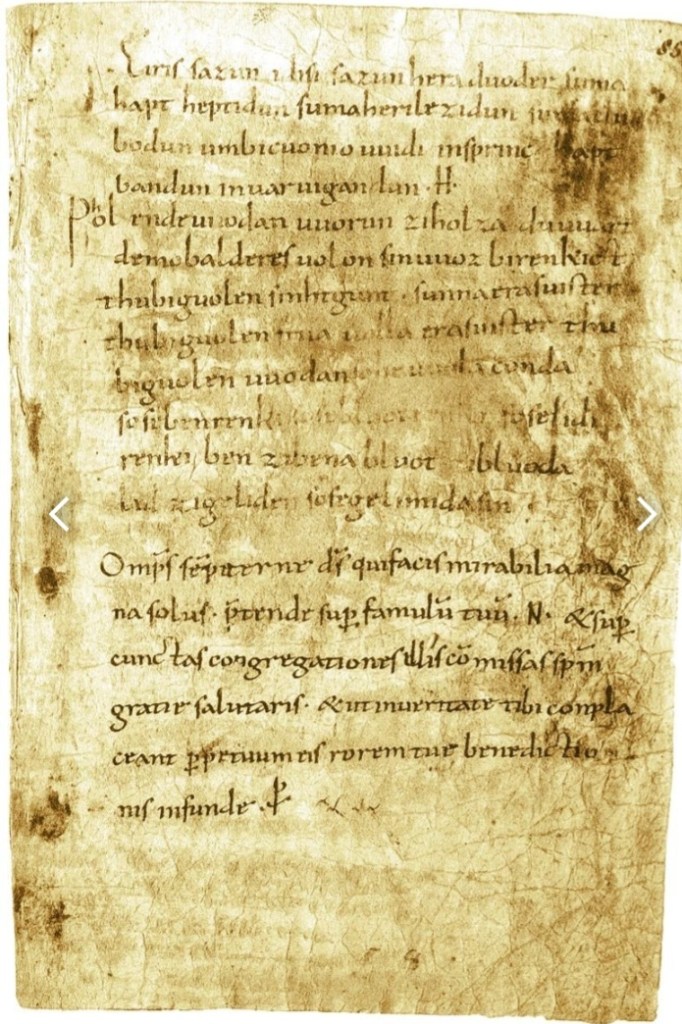 85
Eiris sazun idisi sazun hera duoder suma
hapt heptidun sumaherilezidun sumaclubo
bodun umbicuonio uuidi insprinc hapt
bandun inuar uigandun · H ·
Phol ende uuodan uuorun ziholza du uuart
demobalderes uolon sinuuoz birenkict
thubiguolen sinhtgunt · sunnaerasuister
thubiguolen friia uolla erasuister thu
biguolen uuodan sohe uuola conda
sosebenrenki sosebluotrenki soselidi
renki ben zibena bluot zibluoda
lid zigeliden sosegelimida sin
Omps sēpiterne ds̄ quifacis mirabilia mag
na solus · p̄tende sup famulū tuū · N · &sup
cunctas congregationes illis cōmissas spm̄
gratie salutaris · &utinueritate tibi conpla
ceant ꝑpetuum eis rorem tue benedictio
nis infunde · ꝑ